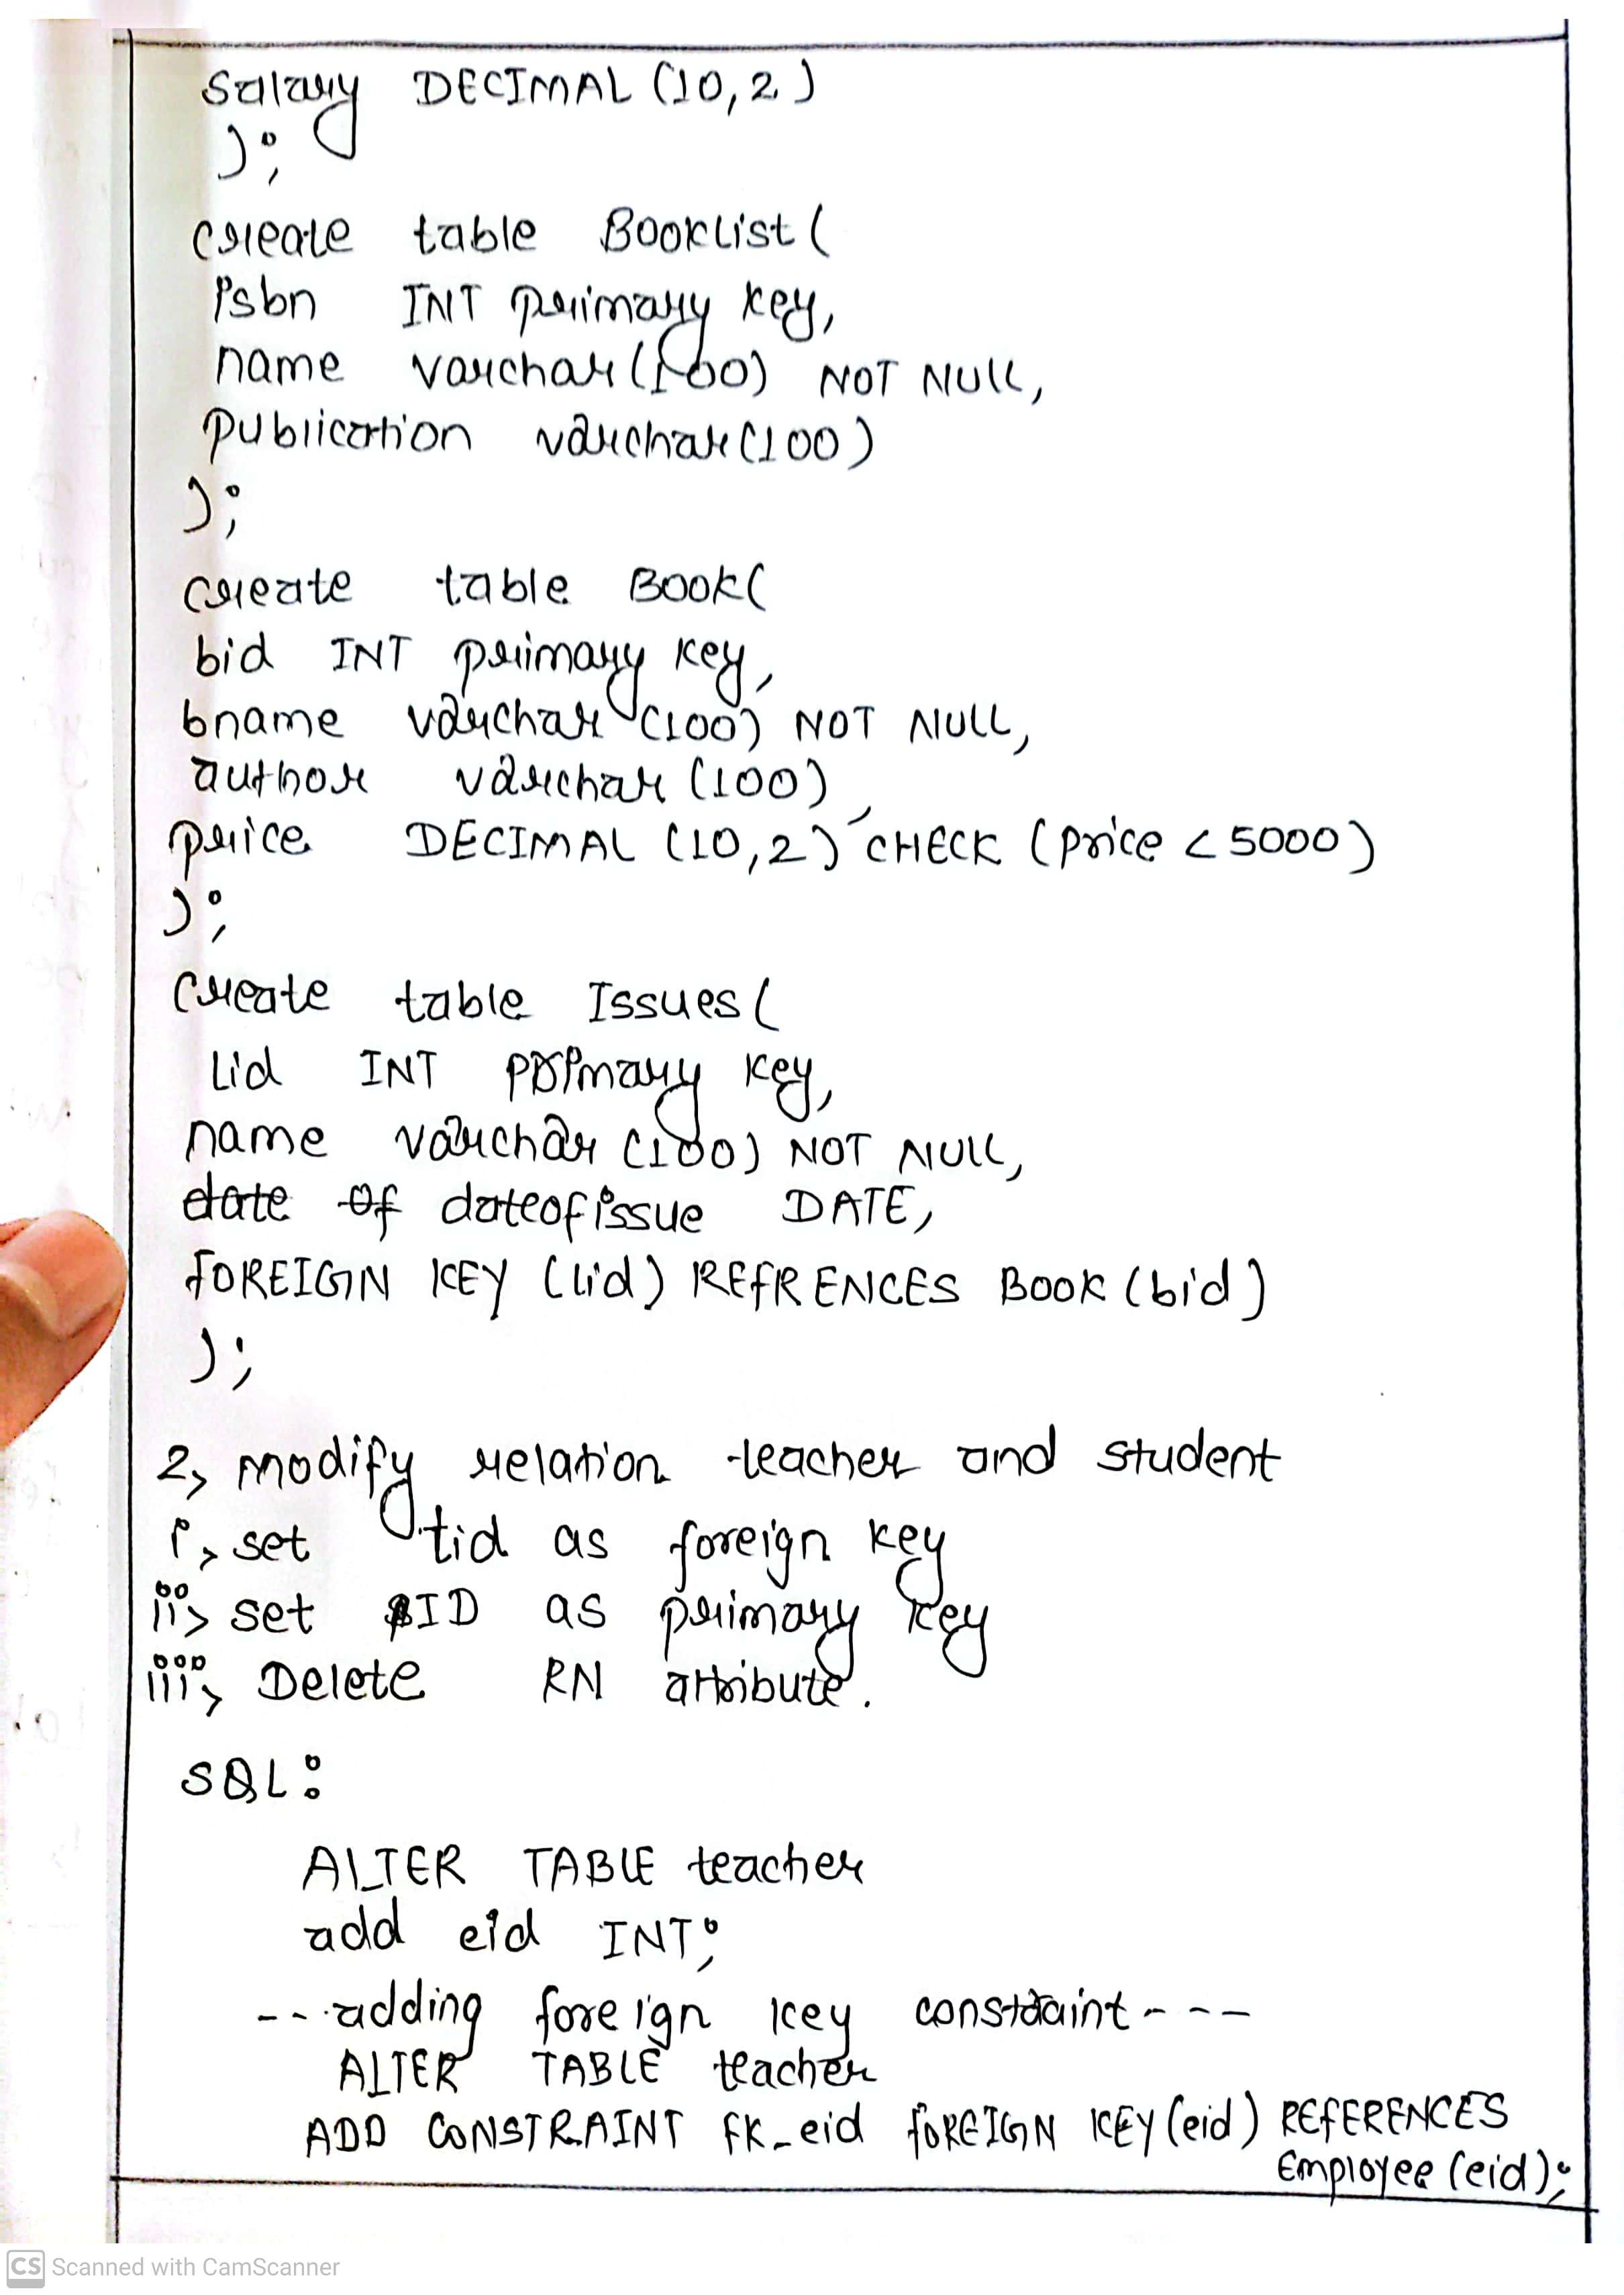 salary DECIMAL (10,2)
);
create table Booklist (
isbn INT primary key,
name varchar(100) NOT NULL,
publication varchar(100)
);
create table Book(
bid INT primary key,
bname varchar (100) NOT NULL,
author varchar (100),
price DECIMAL (10,2) CHECK (price < 5000)
);
create table Issues (
Lid INT primary key,
name varchar (100) NOT NULL,
date of dateofissue DATE,
FOREIGN KEY (lid) REFRENCES Book (bid)
);
2, modify relation teacher and student
i, set tid as foreign key
ii, set SID as primary key
iii, Delete RN attribute.
SQL:
ALTER TABLE teacher
add eid INT;
-- adding foreign key constraint ---
ALTER TABLE teacher
ADD CONSTRAINT FK_eid FOREIGN KEY (eid) REFERENCES
Employee (eid);
CS Scanned with CamScanner